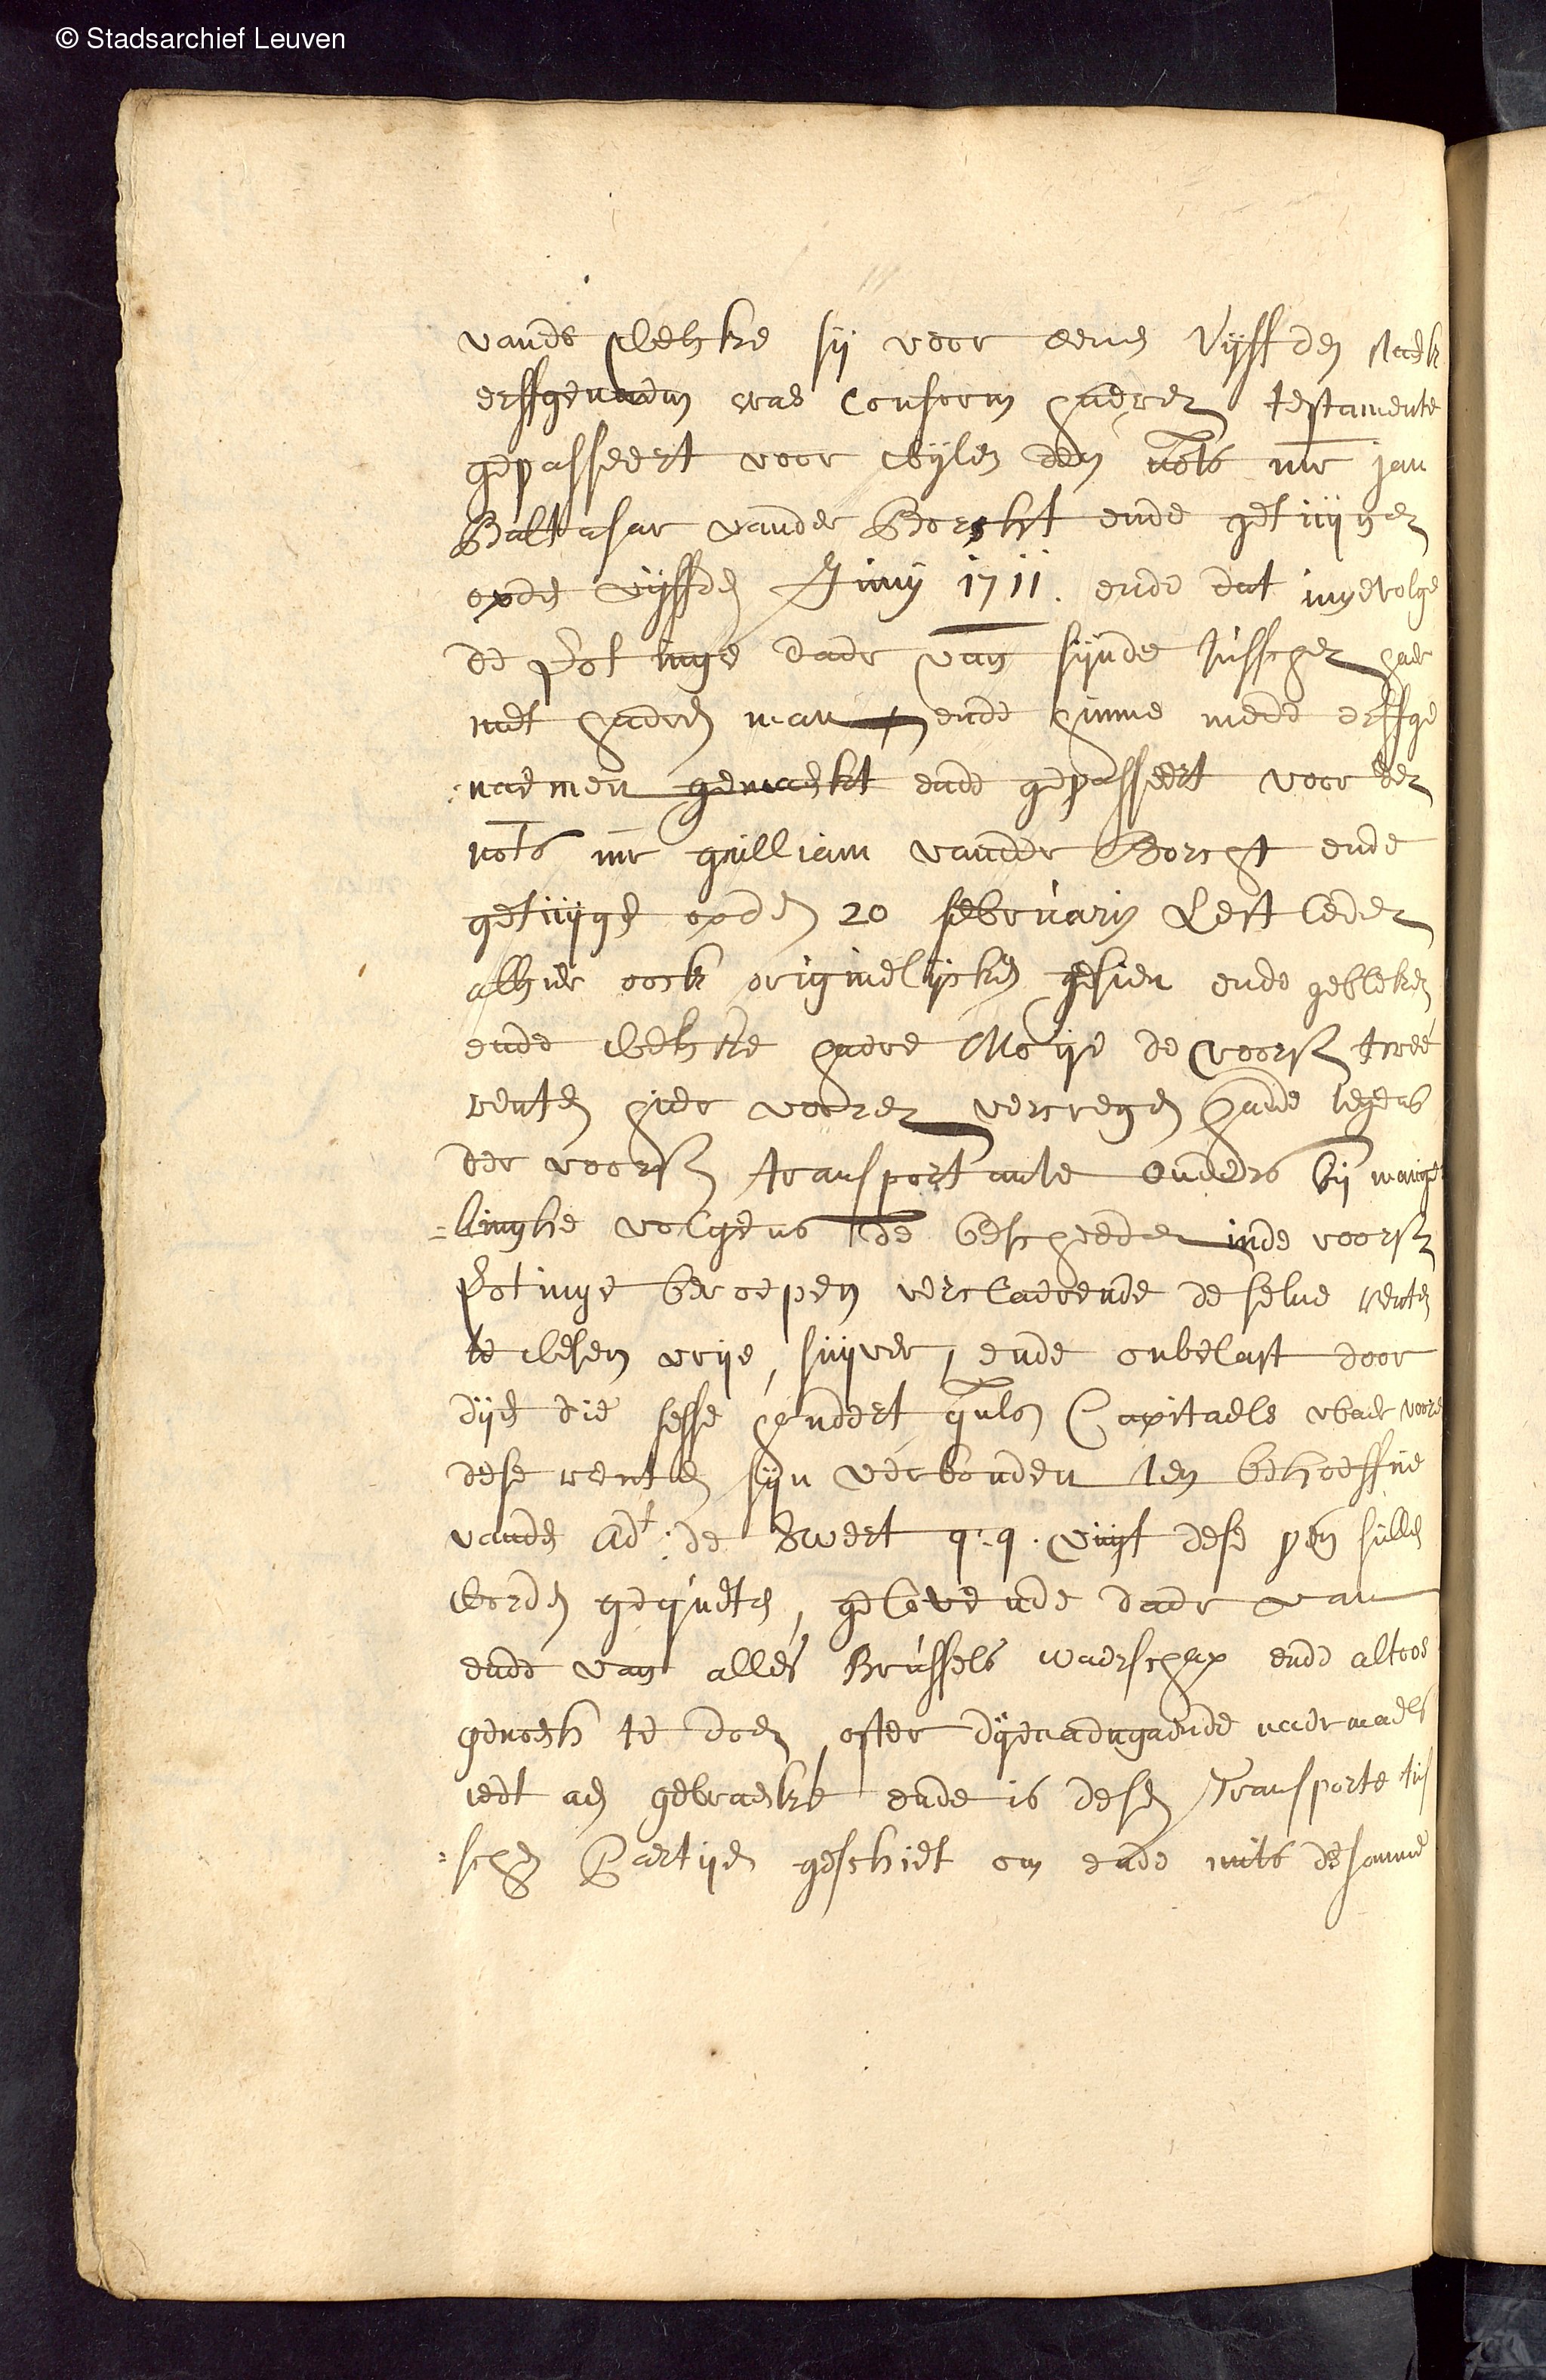 © Stadsarchief Leuven
vande welcke sij voor eenen vijffden staeck
erffgenaem was conform haeren testamente
gepasseert voor wijlen den nots mr jan
Baltasar vander Borcht ende getuygen
opden vijffden Juny 1711. ende dat ingevolge
de Lotinge daer van sijnde tusschen haer
met haeren man ende hunne mede erffge
:naemen gemaeckt ende gepasseert voor den
nots mr guilliam vander Borcht ende
getuygen opden 20 february Lestleden
alhier oock originelijcken gesien ende gebleken
ende welcke haere Moije de voors twee
renten hier vooren vercregen hadde tegens
der voors transportante ouders bij
=linghe volgens de bescheeden inde voors
Lotinge beroepen verclaerende de selve renten
te wesen vrije, suyver, ende onbelast door
dijen die sesse hondert guls Capitaels voor
dese renten sijn verbonden ten behoeffve
vanden adt: de Swert q:q. vuyt dese pen sullen
worden gequeten, gelovende daer van
ende van alles Brussels waerschap ende altoos
genoech te doen, ofter dijenaengaende naermaels
iedt aen gebraecke ende is desen Transporte tus
=schen Partijen geschiet om ende mits de somme